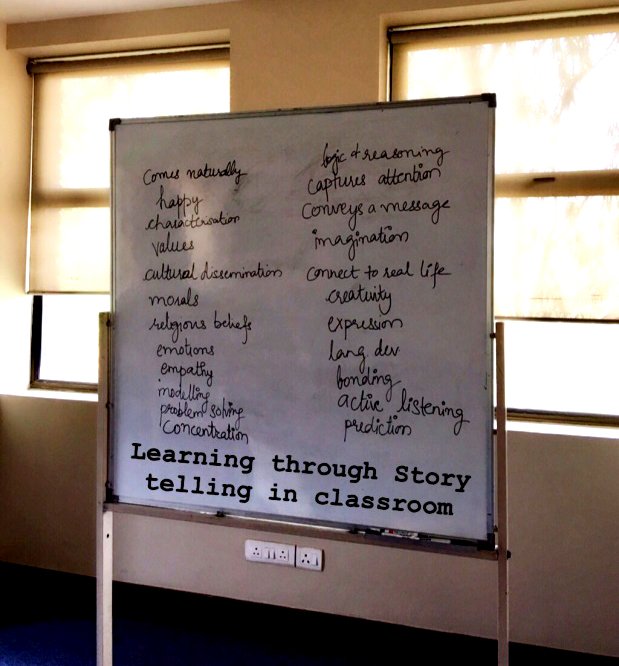 comes naturally
happy
characterisation
values
cultural dissemination
morals
religious beliefs
emotions
empathy
modelling
problem solving
Concentration
logic & reasoning
captures attention
conveys a message
imagination
connect to real life
creativity
expression
lang dev
bonding
active listening
prediction
Learning through Story
telling in classroom